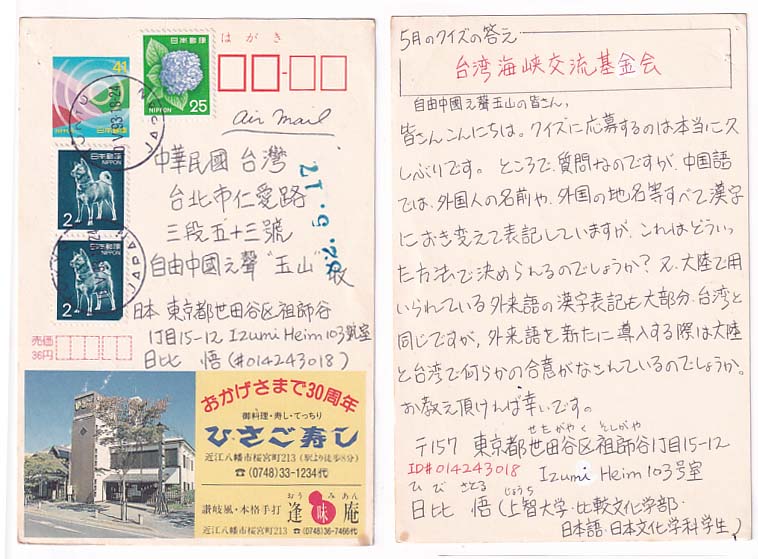 はがき
日本郵便
NIPPON
25
41
日本郵便
NIPPON
2
日本郵便
NIPPON
2
JAPAN
Air Mail
中華民國 台灣
台北市仁愛路
三段五十三號
自由中國之聲"玉山"收
日本 東京都世田谷区祖師谷
1丁目15-12 Izumi Heim 103號室
日比 悟(#014243018)
売価
36円
おかげさまで30周年
御料理・寿し・てっちり
ひさご寿し
近江八幡市桜宮町213(駅より徒歩8分)
☎(0748)33-1234代
讃岐風・本格手打
おうみあん
逢味庵
近江八幡市桜宮町213 ☎(0748)36-7466代
5月のクイズの答え
台湾海峡交流基金会
自由中國之聲玉山の皆さん,
皆さんこんにちは。クイズに応募するのは本当に久
しぶりです。ところで、質問なのですが、中国語
では、外国人の名前や、外国の地名等すべて漢字
におき変えて表記していますが、これはどういっ
た方法で決められるのでしょうか?又、大陸で用
いられている外来語の漢字表記も大部分、台湾と
同じですが、外来語を新たに導入する際は大陸
と台湾で何らかの合意がなされているのでしょうか。
お教え頂ければ幸いです。
せたがやく そしがや
〒157 東京都世田谷区祖師谷1丁目15-12
ID#014243018 Izumi Heim 103号室
ひび さとる じょうち
日比 悟(上智大学・比較文化学部・
日本語・日本文化学科学生)